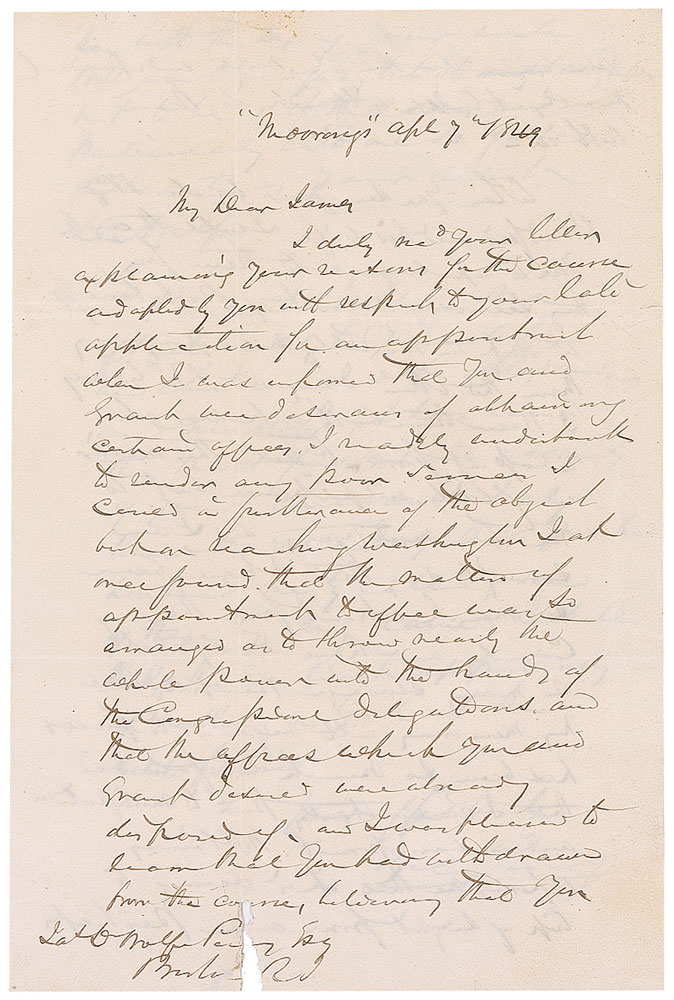 "Moorings" Apl 7th 1849
My Dear James
I duly rec'd your letter
explaining your reasons for the course
adopted by you with respect to your late
application for an appointment
when I was informed that you and
Grant were desirous of obtaining
certain offices. I readily undertook
to render any poor services I
could in furtherance of the object
but on reaching Washington I at
once found that the matter of
appointment to office was so
arranged as to throw nearly the
whole power into the hands of
the Congressional delegations. and
that the offices which you and
Grant desired were already
disposed of. and I was pleased to
learn that you had withdrawn
from the course, believing that you
Jas D Wolfe Perry Esq
RI